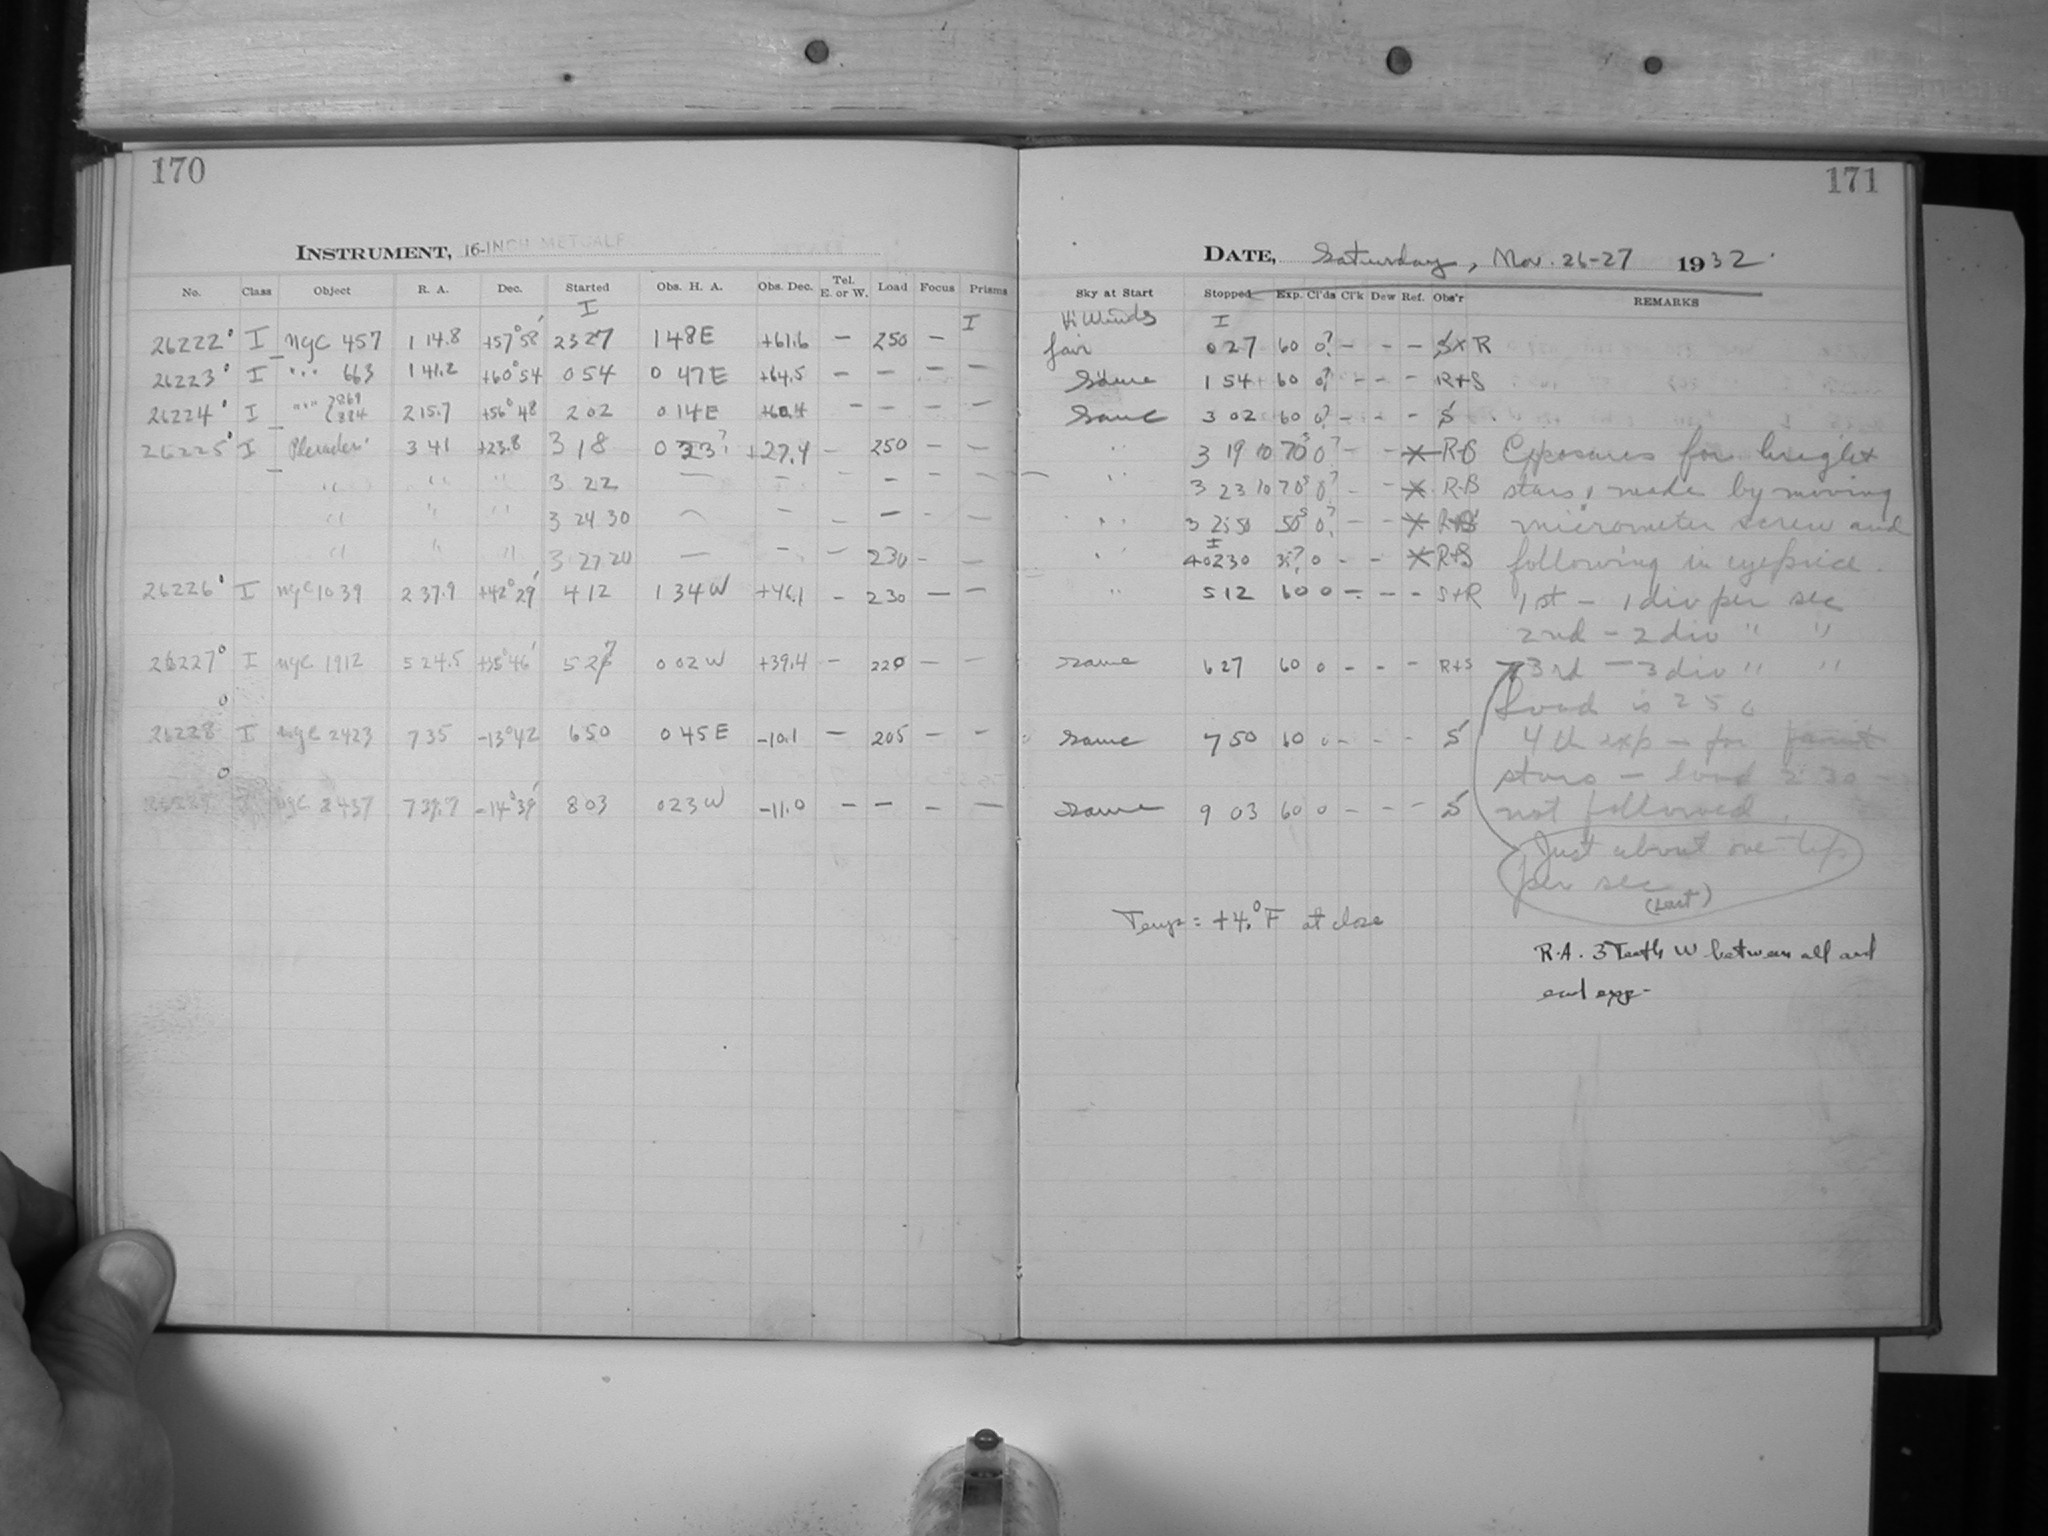 170
INSTRUMENT, 16-INCH METCALF
No. Class Object R. A. Dec. Started Obs. H. A. Obs. Dec. Tel. E. or W. Load Focus Prisms
I I
26222 I NGC 457 1 14.8 +57°58' 23 27 1 48 E +61.6 — 250 —
26223 I " " " 663 1 41.2 +60°54 0 54 0 47 E +64.5 — — — —
26224 I " " " {869 884 2 15.7 +56°48 2 02 0 14 E +60.4 — — — —
26225 I Pleiades 3 41 +23.8 3 18 0 23? +27.4 — 250 — —
" " " 3 22 — — — — — —
" " " 3 24 30 — — — — — —
" " " 3 27 20 — — — 230 — —
26226 I NGC 1039 2 37.9 +42°29' 4 12 1 34 W +46.1 — 230 — —
26227 I NGC 1912 5 24.5 +35°46' 5 27 0 02 W +39.4 — 220 — —
26228 I NGC 2423 7 35 -13°42 6 50 0 45 E -10.1 — 205 — —
I NGC 2437 -14°39' 8 03 0 23 W -11.0 — — — —
171
DATE, Saturday, Nov. 26-27 1932.
Sky at Start Stopped Exp. Cl'ds Cl'k Dew Ref. Obs'r REMARKS
Hi Winds I
fair 0 27 60 0? — — — S×R
Same 1 54 60 0? — — — R+S
Same 3 02 60 0? — — — S
" 3 19 10 70s 0? — — R-S Exposures for bright
" 3 23 10 70s 0? — — R-S stars, made by moving
" 3 25 50 50s 0? — — R+S micrometer screw and
I
" 4 02 30 35? 0 — — R+S following in eyepiece.
" 5 12 60 0 — — — S+R 1st — 1 div per sec
2nd — 2 div " "
same 6 27 60 0 — — — R+S 3rd — 3 div " "
Load is 250
same 7 50 60 0 — — — S 4th exp — for faint
stars — load 230 —
same 9 03 60 0 — — — S not followed.
Just about one
per sec
(Last)
Temp = +4.°F at close
R.A. 3 Teeth W between all and
end exp-